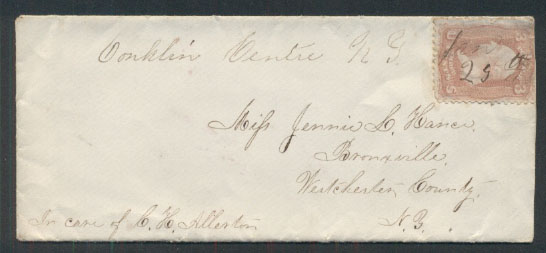 Conklin Centre N.Y.
3 3
Jan
25
Miss Jennie L. Hance
Bronxville
Westchester County
N.Y.
In care of C. H. Allerton